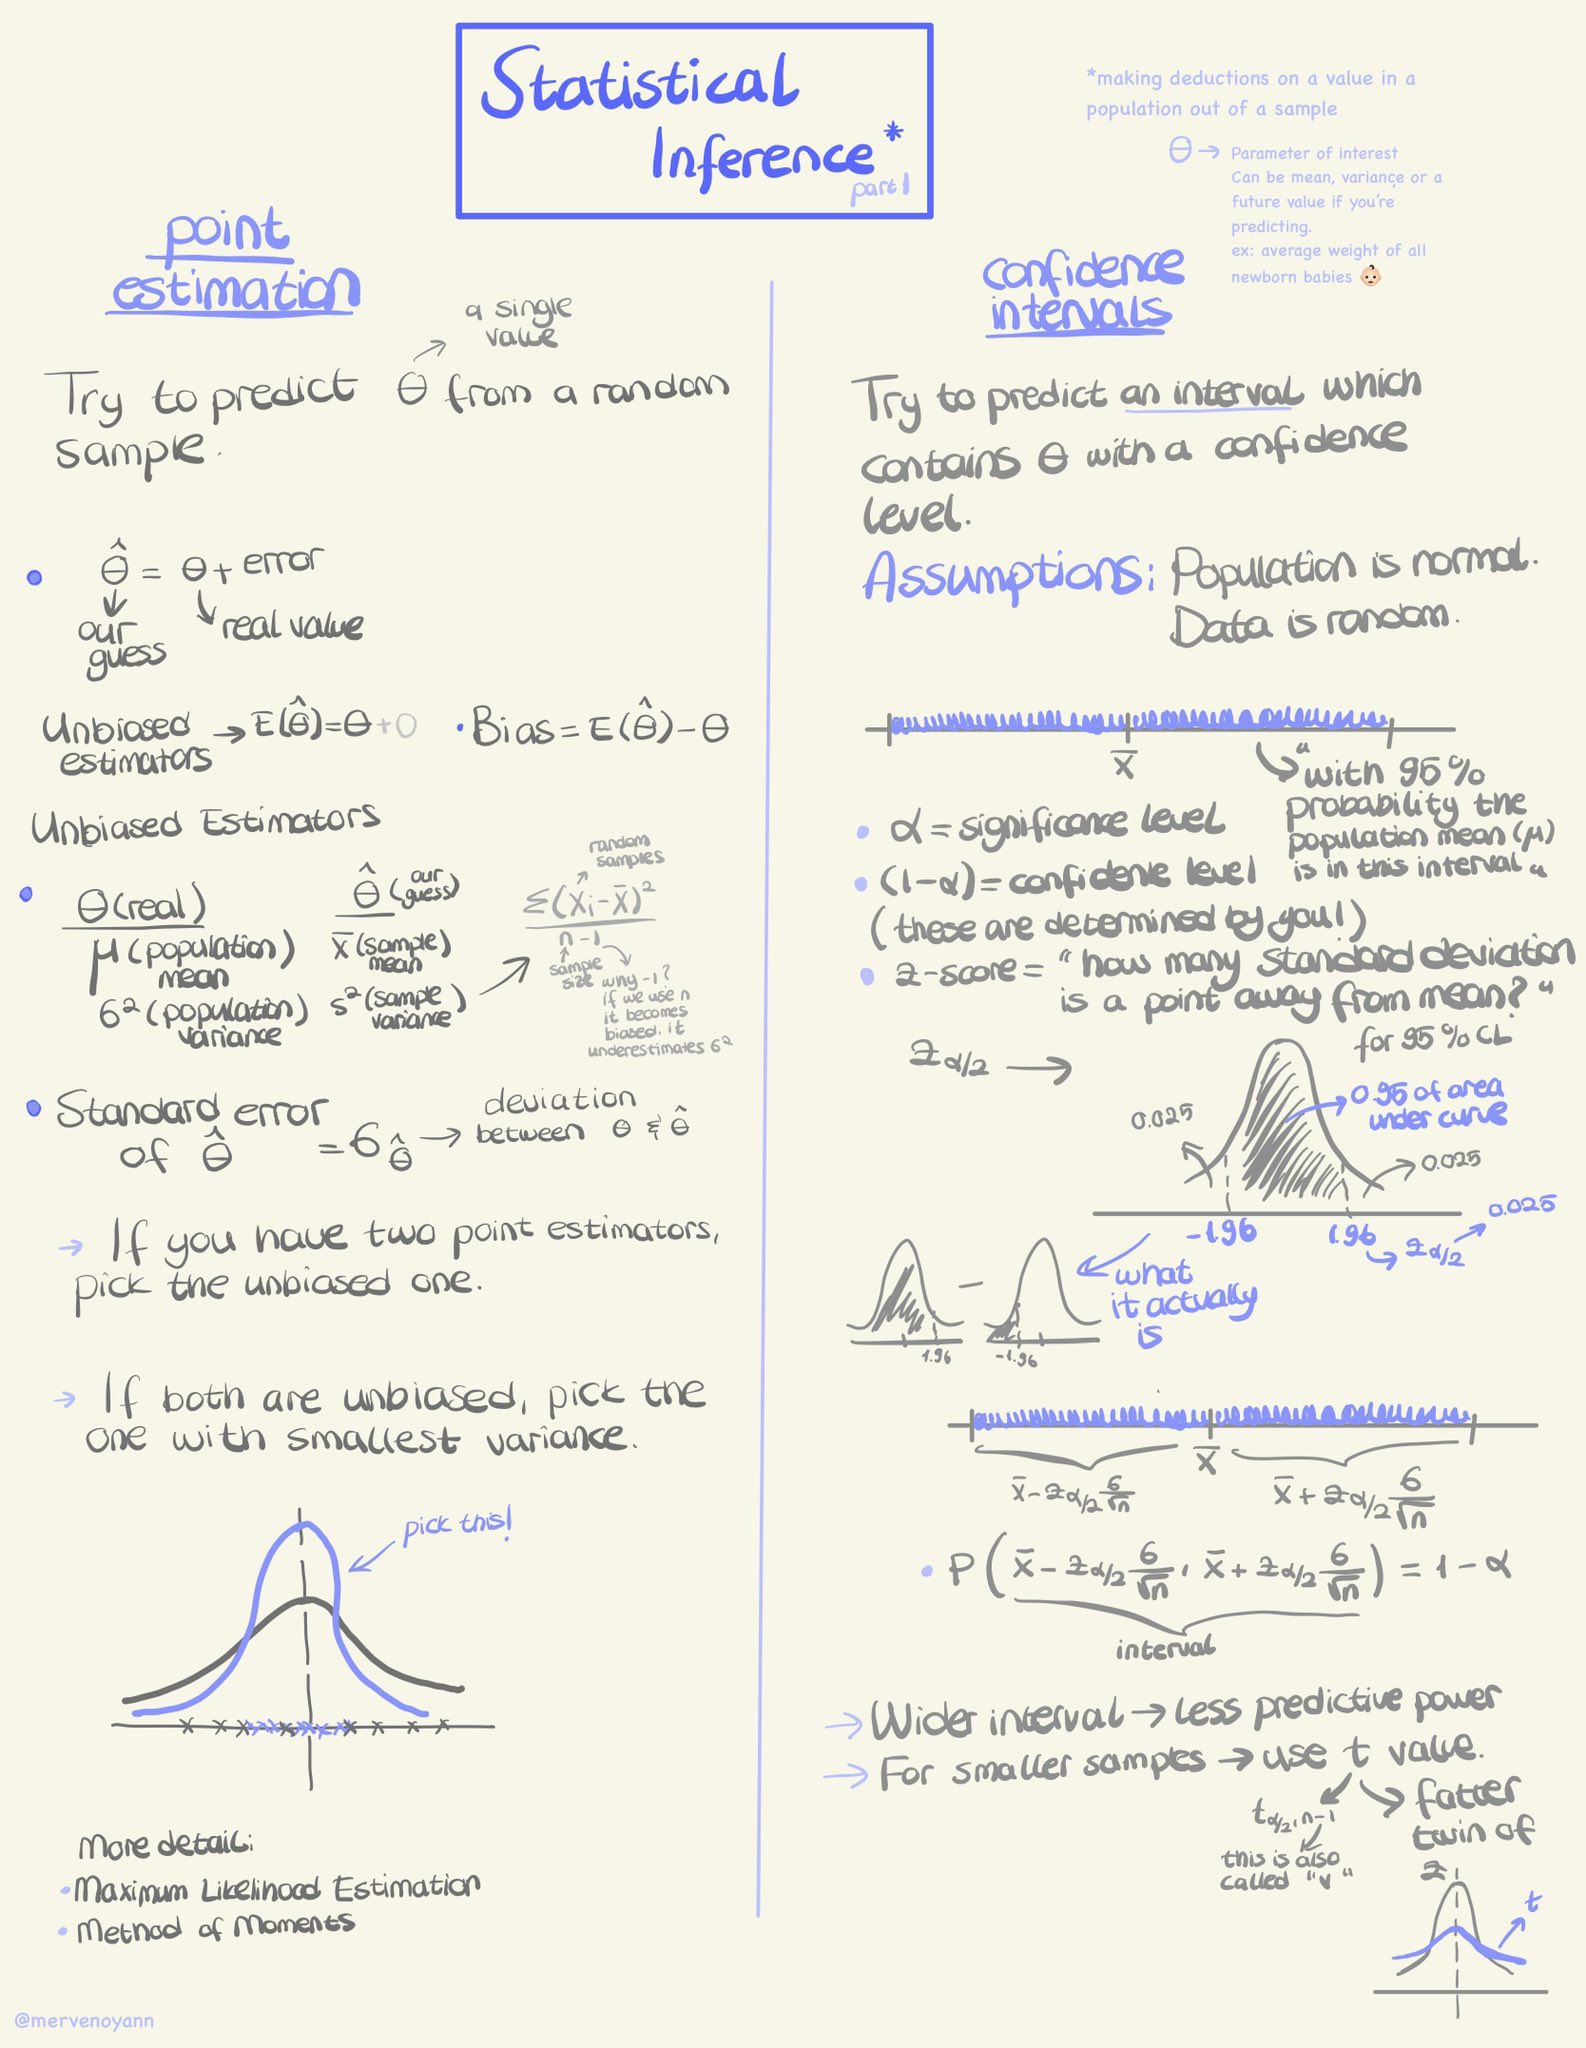 Statistical
Inference*
part 1
*making deductions on a value in a
population out of a sample
θ → Parameter of interest
Can be mean, variance or a
future value if you're
predicting.
ex: average weight of all
newborn babies 👶🏻
point
estimation
a single
value
Try to predict θ from a random
sample.
• θ̂ = θ + error
our
guess
real value
Unbiased → E(θ̂) = θ + 0
estimators
• Bias = E(θ̂) - θ
Unbiased Estimators
• θ (real)
θ̂ (our
guess)
μ (population
mean)
x̄ (sample
mean)
σ² (population
variance)
s² (sample
variance)
random
samples
Σ(Xi - X̄)²
n - 1
sample
size
why -1?
if we use n
it becomes
biased. it
underestimates σ²
• Standard error
of θ̂ = σ θ̂ →
deviation
between θ & θ̂
→ If you have two point estimators,
pick the unbiased one.
→ If both are unbiased, pick the
one with smallest variance.
pick this!
More detail:
• Maximum Likelihood Estimation
• Method of Moments
@mervenoyann
confidence
intervals
Try to predict an interval which
contains θ with a confidence
level.
Assumptions: Population is normal.
Data is random.
X̄
"with 95%
probability the
population mean (μ)
is in this interval"
• α = significance level
• (1-α) = confidence level
(these are determined by you!)
• z-score = "how many standard deviation
is a point away from mean?"
z α/2 →
for 95% CL
0.95 of area
under curve
0.025
0.025
-1.96
1.96 → z α/2
0.025
what
it actually
is
1.96
−
-1.96
X̄
x̄ - z α/2 σ/√n
x̄ + z α/2 σ/√n
• P( x̄ - z α/2 σ/√n , x̄ + z α/2 σ/√n ) = 1 - α
interval
→ Wider interval → less predictive power
→ For smaller samples → use t value.
t α/2, n-1
this is also
called "v"
fatter
twin of
z
t